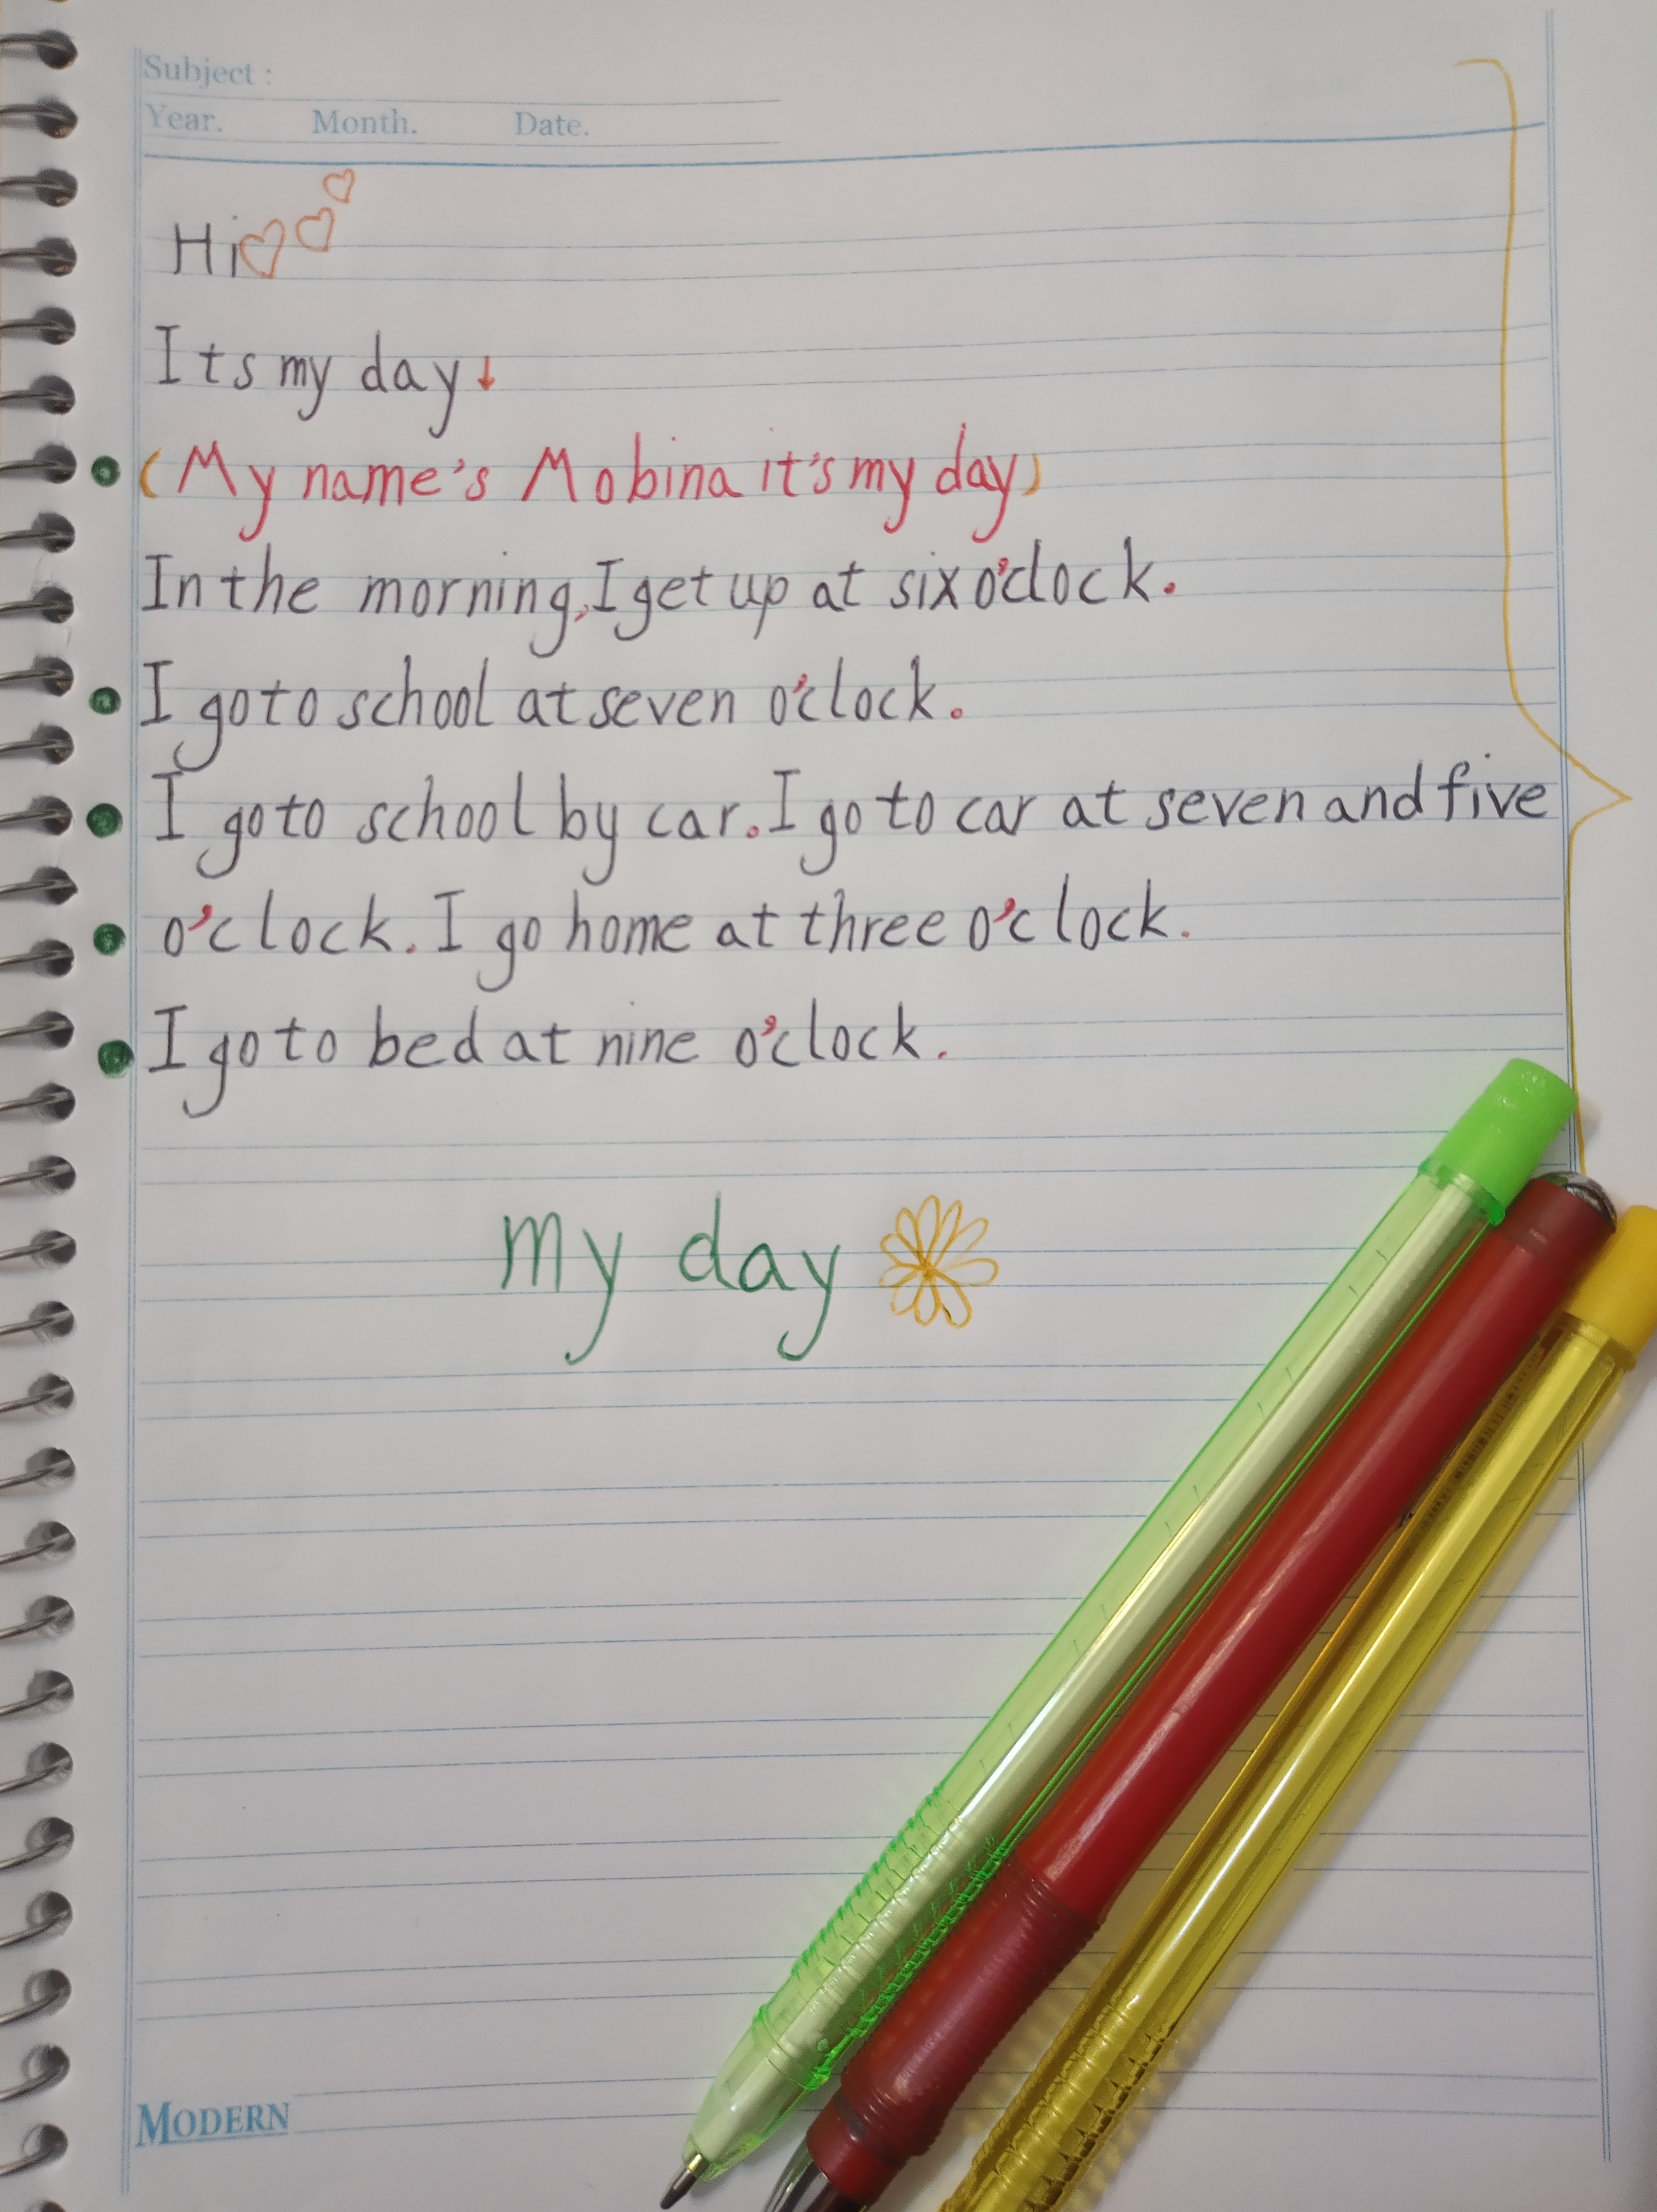 Subject :
Year. Month. Date.
Hi
Its my day
(My name's Mobina it's my day)
In the morning, I get up at six o'clock.
I go to school at seven o'clock.
I go to school by car. I go to car at seven and five
o'clock. I go home at three o'clock.
I go to bed at nine o'clock.
my day
MODERN